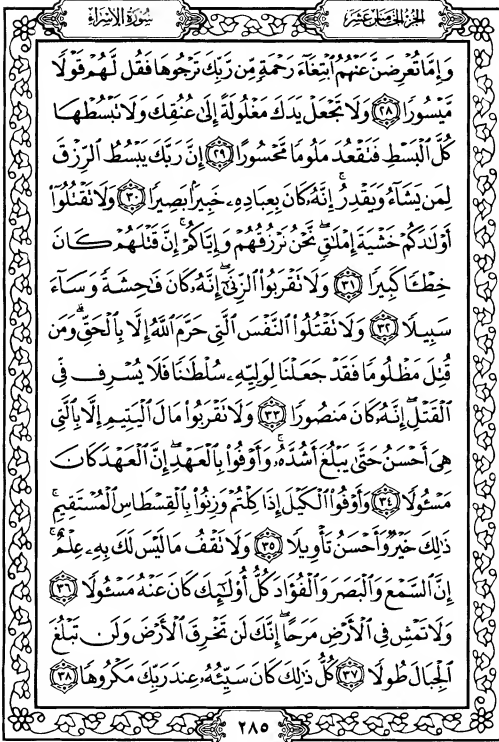 سورة الإسراء
الجزء الخامس عشر
وَإِمَّا تُعْرِضَنَّ عَنْهُمُ ابْتِغَاءَ رَحْمَةٍ مِّن رَّبِّكَ تَرْجُوهَا فَقُل لَّهُمْ قَوْلًا
مَّيْسُورًا ﴿٢٨﴾ وَلَا تَجْعَلْ يَدَكَ مَغْلُولَةً إِلَىٰ عُنُقِكَ وَلَا تَبْسُطْهَا
كُلَّ الْبَسْطِ فَتَقْعُدَ مَلُومًا مَّحْسُورًا ﴿٢٩﴾ إِنَّ رَبَّكَ يَبْسُطُ الرِّزْقَ
لِمَن يَشَاءُ وَيَقْدِرُ ۚ إِنَّهُ كَانَ بِعِبَادِهِ خَبِيرًا بَصِيرًا ﴿٣٠﴾ وَلَا تَقْتُلُوا
أَوْلَٰدَكُمْ خَشْيَةَ إِمْلَٰقٍ ۖ نَّحْنُ نَرْزُقُهُمْ وَإِيَّاكُمْ ۚ إِنَّ قَتْلَهُمْ كَانَ
خِطْـًٔا كَبِيرًا ﴿٣١﴾ وَلَا تَقْرَبُوا الزِّنَىٰ ۖ إِنَّهُ كَانَ فَٰحِشَةً وَسَاءَ
سَبِيلًا ﴿٣٢﴾ وَلَا تَقْتُلُوا النَّفْسَ الَّتِي حَرَّمَ اللَّهُ إِلَّا بِالْحَقِّ ۗ وَمَن
قُتِلَ مَظْلُومًا فَقَدْ جَعَلْنَا لِوَلِيِّهِ سُلْطَٰنًا فَلَا يُسْرِف فِّي
الْقَتْلِ ۖ إِنَّهُ كَانَ مَنصُورًا ﴿٣٣﴾ وَلَا تَقْرَبُوا مَالَ الْيَتِيمِ إِلَّا بِالَّتِي
هِيَ أَحْسَنُ حَتَّىٰ يَبْلُغَ أَشُدَّهُ ۚ وَأَوْفُوا بِالْعَهْدِ ۖ إِنَّ الْعَهْدَ كَانَ
مَسْـُٔولًا ﴿٣٤﴾ وَأَوْفُوا الْكَيْلَ إِذَا كِلْتُمْ وَزِنُوا بِالْقِسْطَاسِ الْمُسْتَقِيمِ ۚ
ذَٰلِكَ خَيْرٌ وَأَحْسَنُ تَأْوِيلًا ﴿٣٥﴾ وَلَا تَقْفُ مَا لَيْسَ لَكَ بِهِ عِلْمٌ ۚ
إِنَّ السَّمْعَ وَالْبَصَرَ وَالْفُؤَادَ كُلُّ أُولَٰئِكَ كَانَ عَنْهُ مَسْـُٔولًا ﴿٣٦﴾
وَلَا تَمْشِ فِي الْأَرْضِ مَرَحًا ۖ إِنَّكَ لَن تَخْرِقَ الْأَرْضَ وَلَن تَبْلُغَ
الْجِبَالَ طُولًا ﴿٣٧﴾ كُلُّ ذَٰلِكَ كَانَ سَيِّئُهُ عِندَ رَبِّكَ مَكْرُوهًا ﴿٣٨﴾
٢٨٥